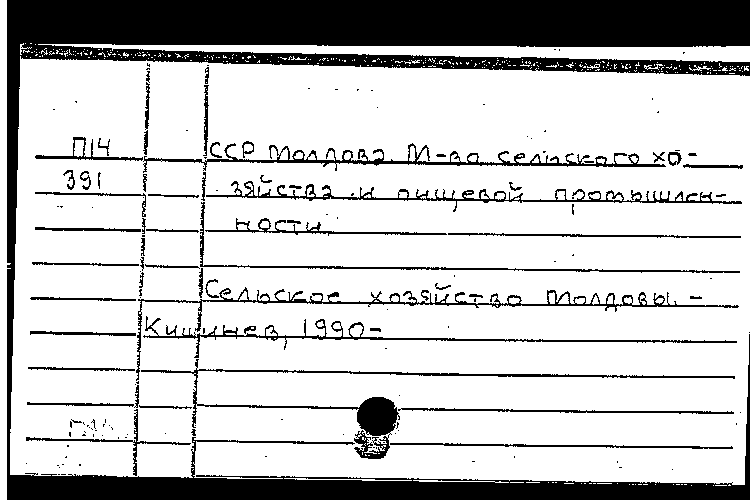 П14
391
ССР Молдова. М-во сельского хо-
зяйства и пищевой промышлен-
ности.
Сельское хозяйство Молдовы. -
Кишинев, 1990-
П14